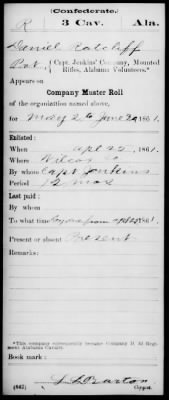 (Confederate.)
R 3 Cav. Ala.
Daniel Ratcliff
Pvt, Capt. Jenkins' Company, Mounted
Rifles, Alabama Volunteers.*
Appears on
Company Muster Roll
of the organization named above,
for May 2 to June 30, 1861.
Enlisted:
When Apl 22, 1861.
Where Wilcox Co
By whom Capt Jenkins
Period 12 mos
Last paid:
By whom
To what time 1861.
Present or absent Present
Remarks:
*This company subsequently became Company D, 3d Regi-
ment Alabama Cavalry.
Book mark:
(642)
Barton
Copyist.